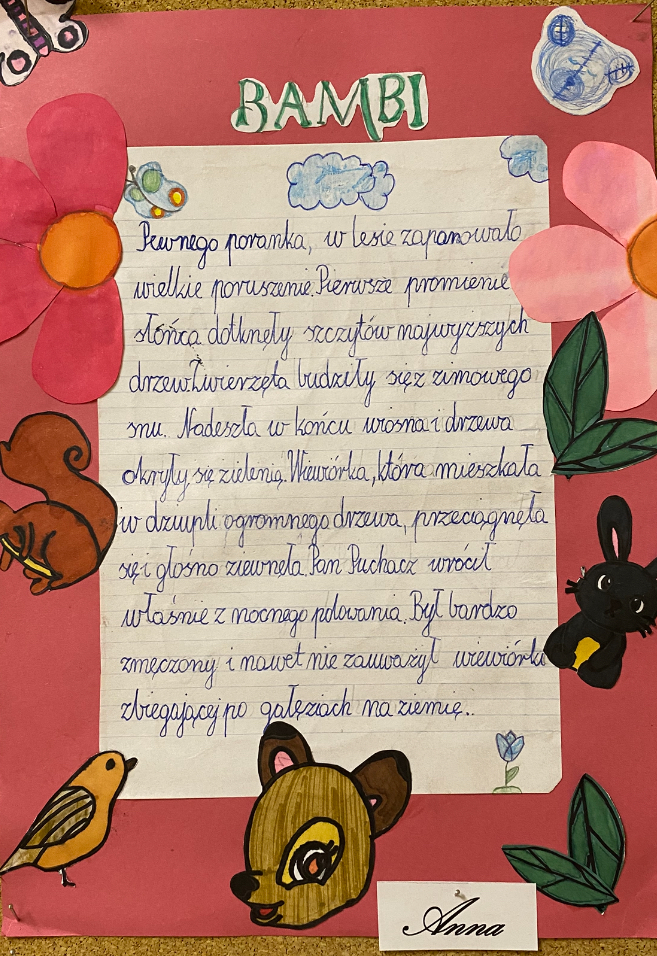 BAMBI
Pewnego poranka, w lesie zapanowało
wielkie poruszenie. Pierwsze promienie
słońca dotknęły szczytów najwyższych
drzew. Zwierzęta budziły się z zimowego
snu. Nadeszła w końcu wiosna i drzewa
okryły się zielenią. Wiewiórka, która mieszkała
w dziupli ogromnego drzewa, przeciągnęła
się i głośno ziewnęła. Pan Puchacz wrócił
właśnie z nocnego polowania. Był bardzo
zmęczony i nawet nie zauważył wiewiórki
zbiegającej po gałęziach na ziemię..
Anna